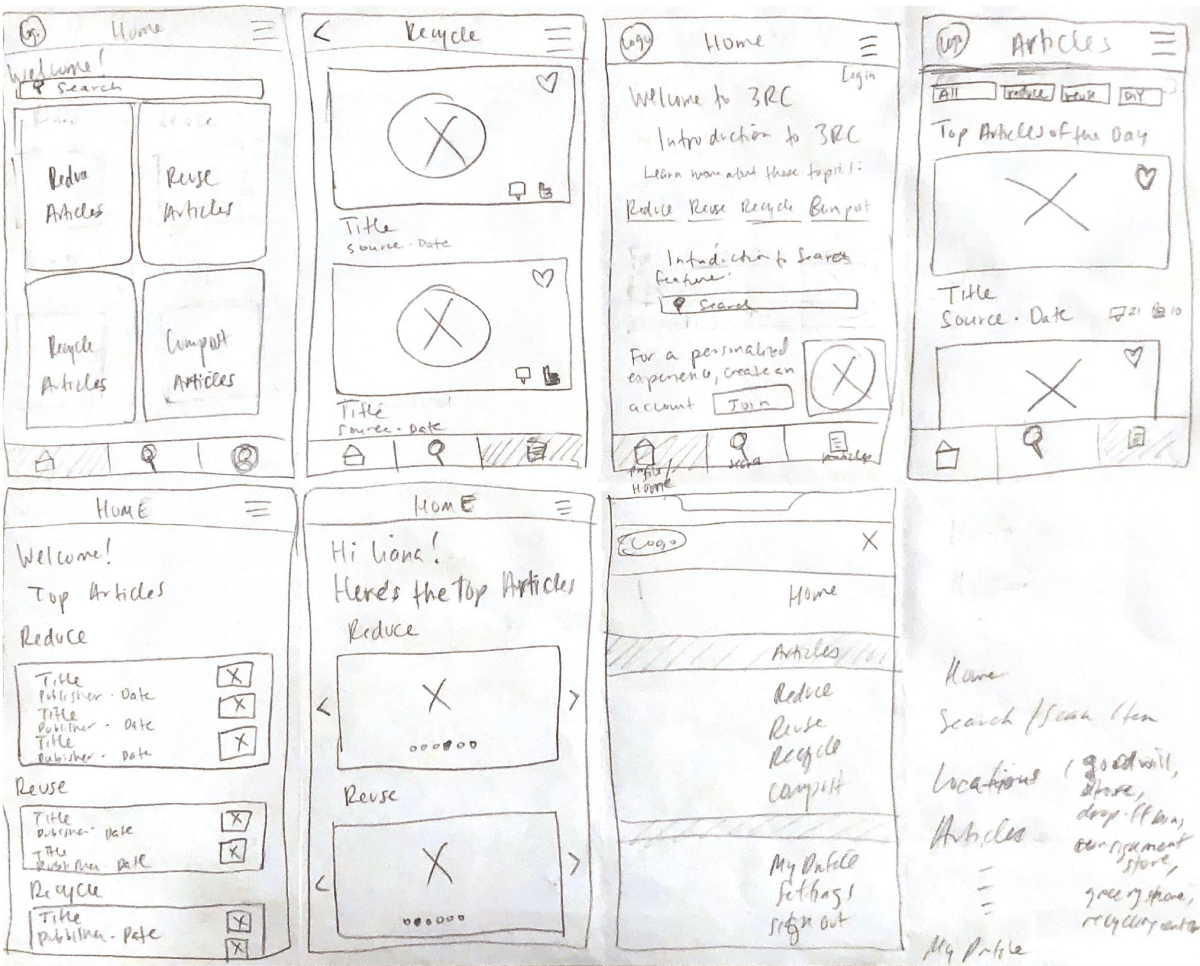 Logo Home
Welcome!
Search
Reduce
Articles
Reuse
Articles
Recycle
Articles
Compost
Articles
Recycle
Title
Source · Date
Title
Source · Date
Logo Home
Login
Welcome to 3RC
Introduction to 3RC
Learn more about these topics:
Reduce Reuse Recycle Compost
Introduction to Search
feature:
Search
For a personalized
experience, create an
account Join
Profile/
Home
Search
Articles
Logo Articles
All reduce reuse DIY
Top Articles of the Day
Title
Source · Date 21 10
HOME
Welcome!
Top Articles
Reduce
Title
Publisher · Date
Title
Publisher · Date
Title
Publisher · Date
Reuse
Title
Publisher · Date
Title
Publisher · Date
Recycle
Title
Publisher · Date
HOME
Hi Liana!
Here's the Top Articles
Reduce
Reuse
Logo
Home
Articles
Reduce
Reuse
Recycle
Compost
My Profile
Settings
Sign out
Home
Search / Scan Item
Locations (goodwill,
store,
drop-off bin,
consignment
store,
grocery store,
recycling center
Articles
My Profile